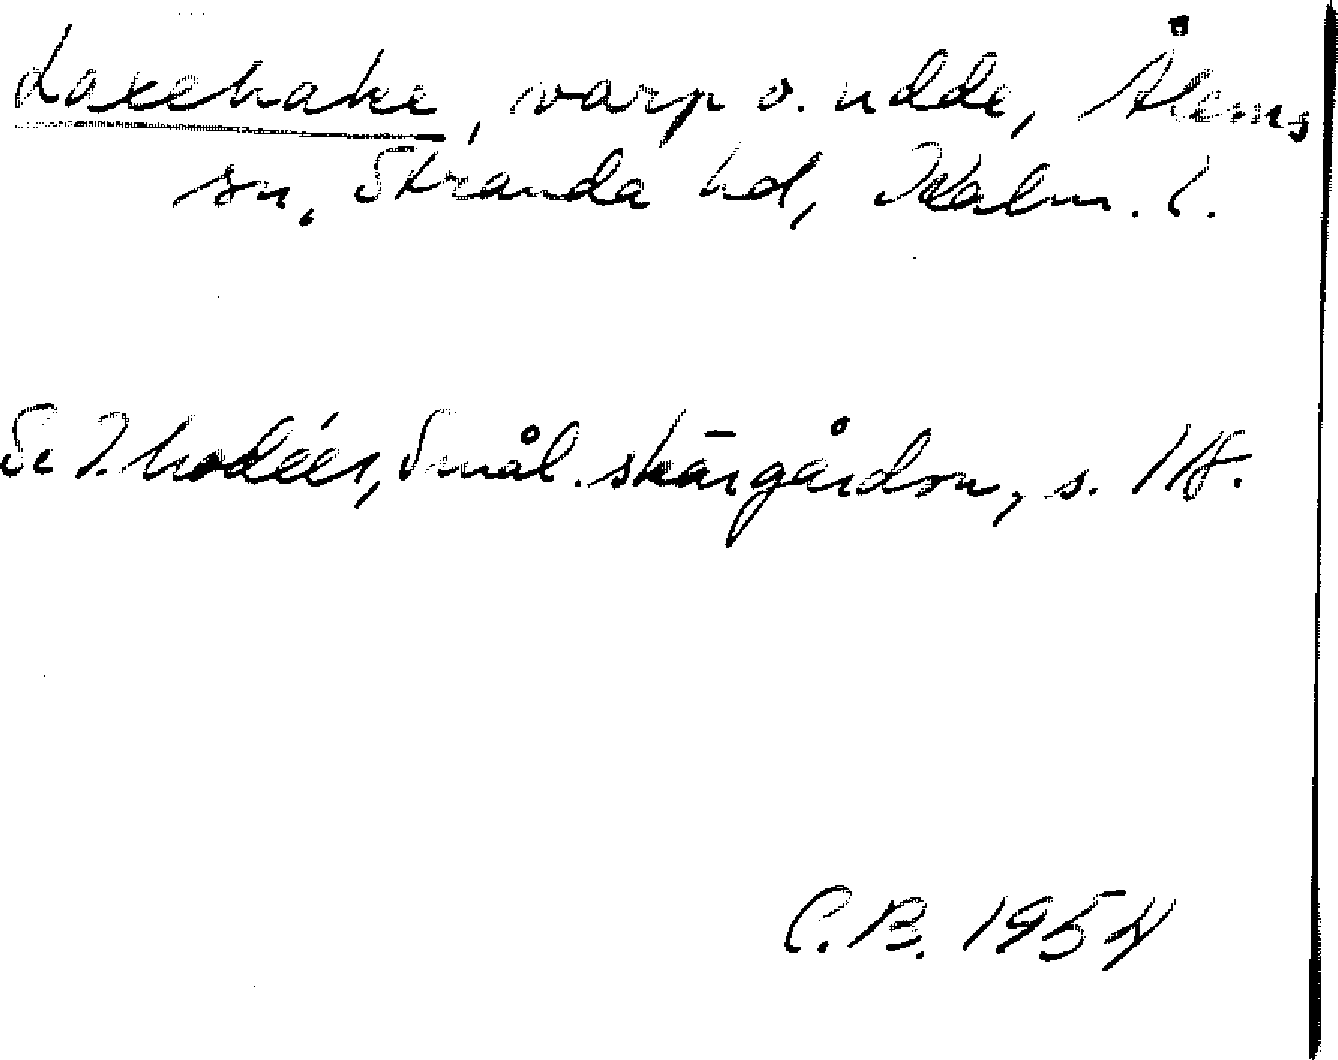 Laxehake, varp o. udde, Ålems
sn, Stranda hd, Kalm. l.
Se I. Modéer, Smål. skärgårdsn, s.
C.B. 1954